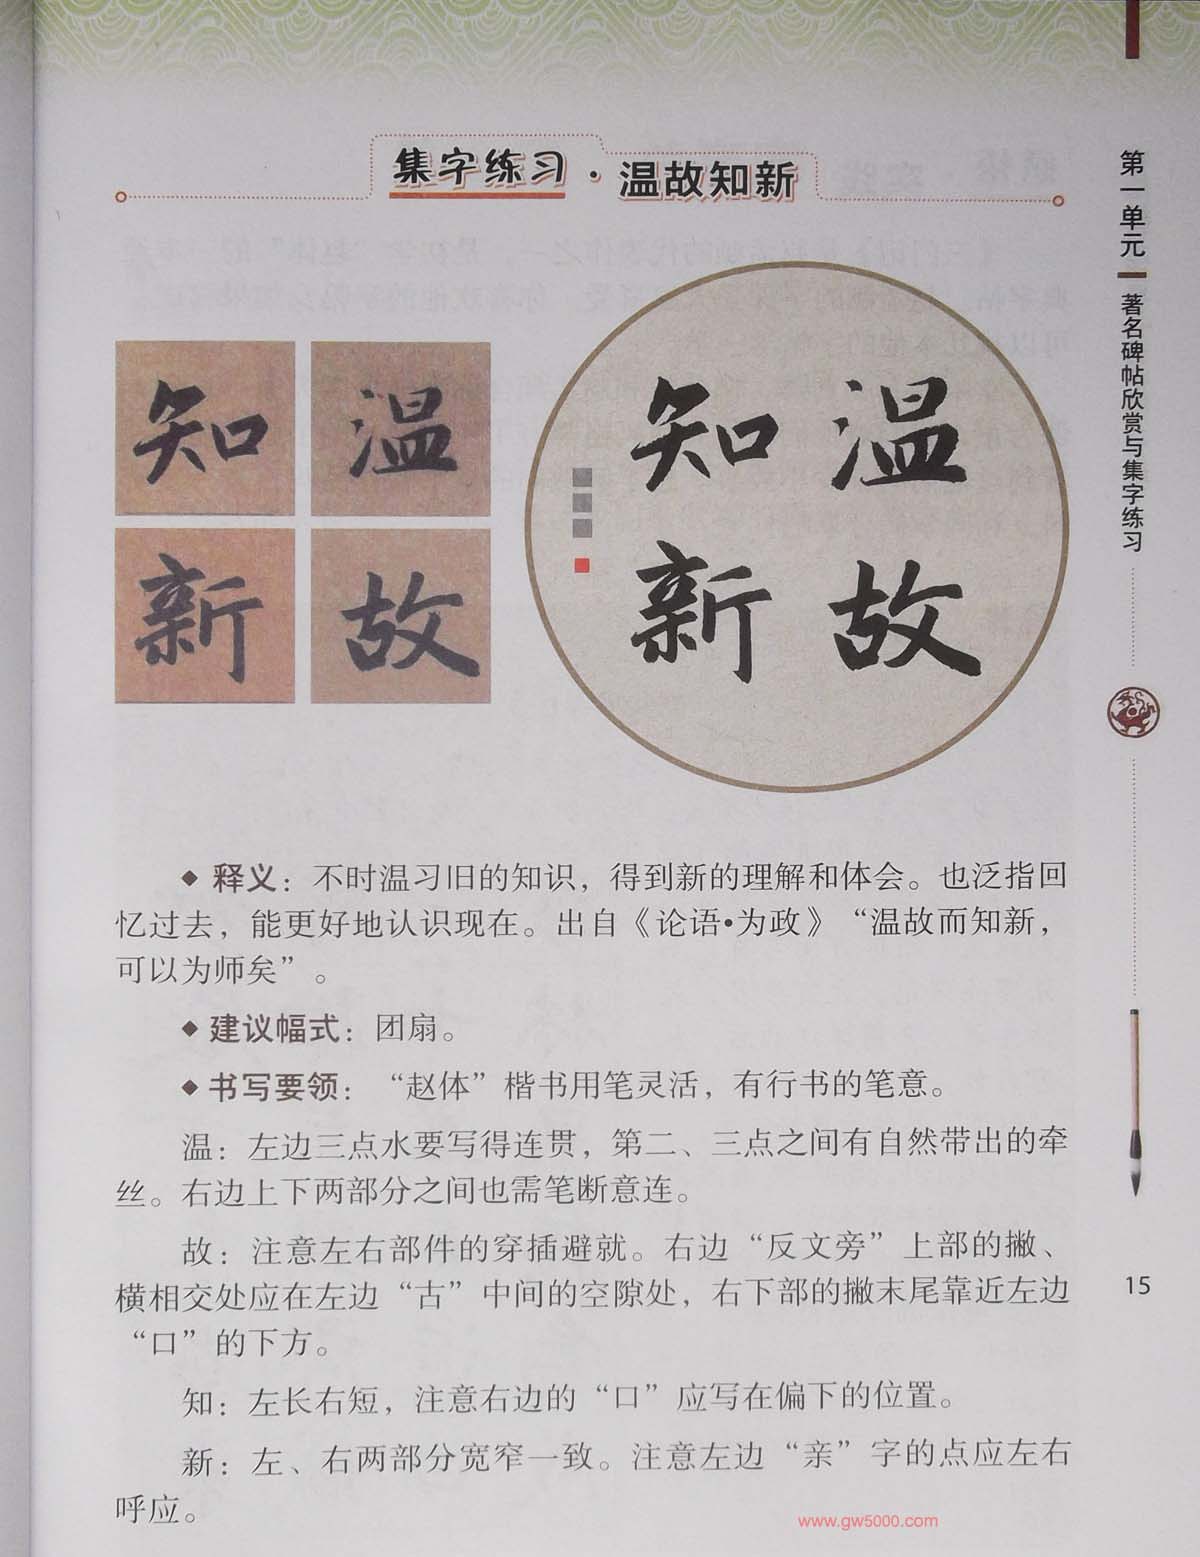 集字练习·温故知新
第一单元
著名碑帖欣赏与集字练习
知温
新故
知温
新故
◆ 释义：不时温习旧的知识，得到新的理解和体会。也泛指回
忆过去，能更好地认识现在。出自《论语•为政》“温故而知新，
可以为师矣”。
◆ 建议幅式：团扇。
◆ 书写要领：“赵体”楷书用笔灵活，有行书的笔意。
温：左边三点水要写得连贯，第二、三点之间有自然带出的牵
丝。右边上下两部分之间也需笔断意连。
故：注意左右部件的穿插避就。右边“反文旁”上部的撇、
横相交处应在左边“古”中间的空隙处，右下部的撇末尾靠近左边
“口”的下方。
知：左长右短，注意右边的“口”应写在偏下的位置。
新：左、右两部分宽窄一致。注意左边“亲”字的点应左右
呼应。
15
www.gw5000.com